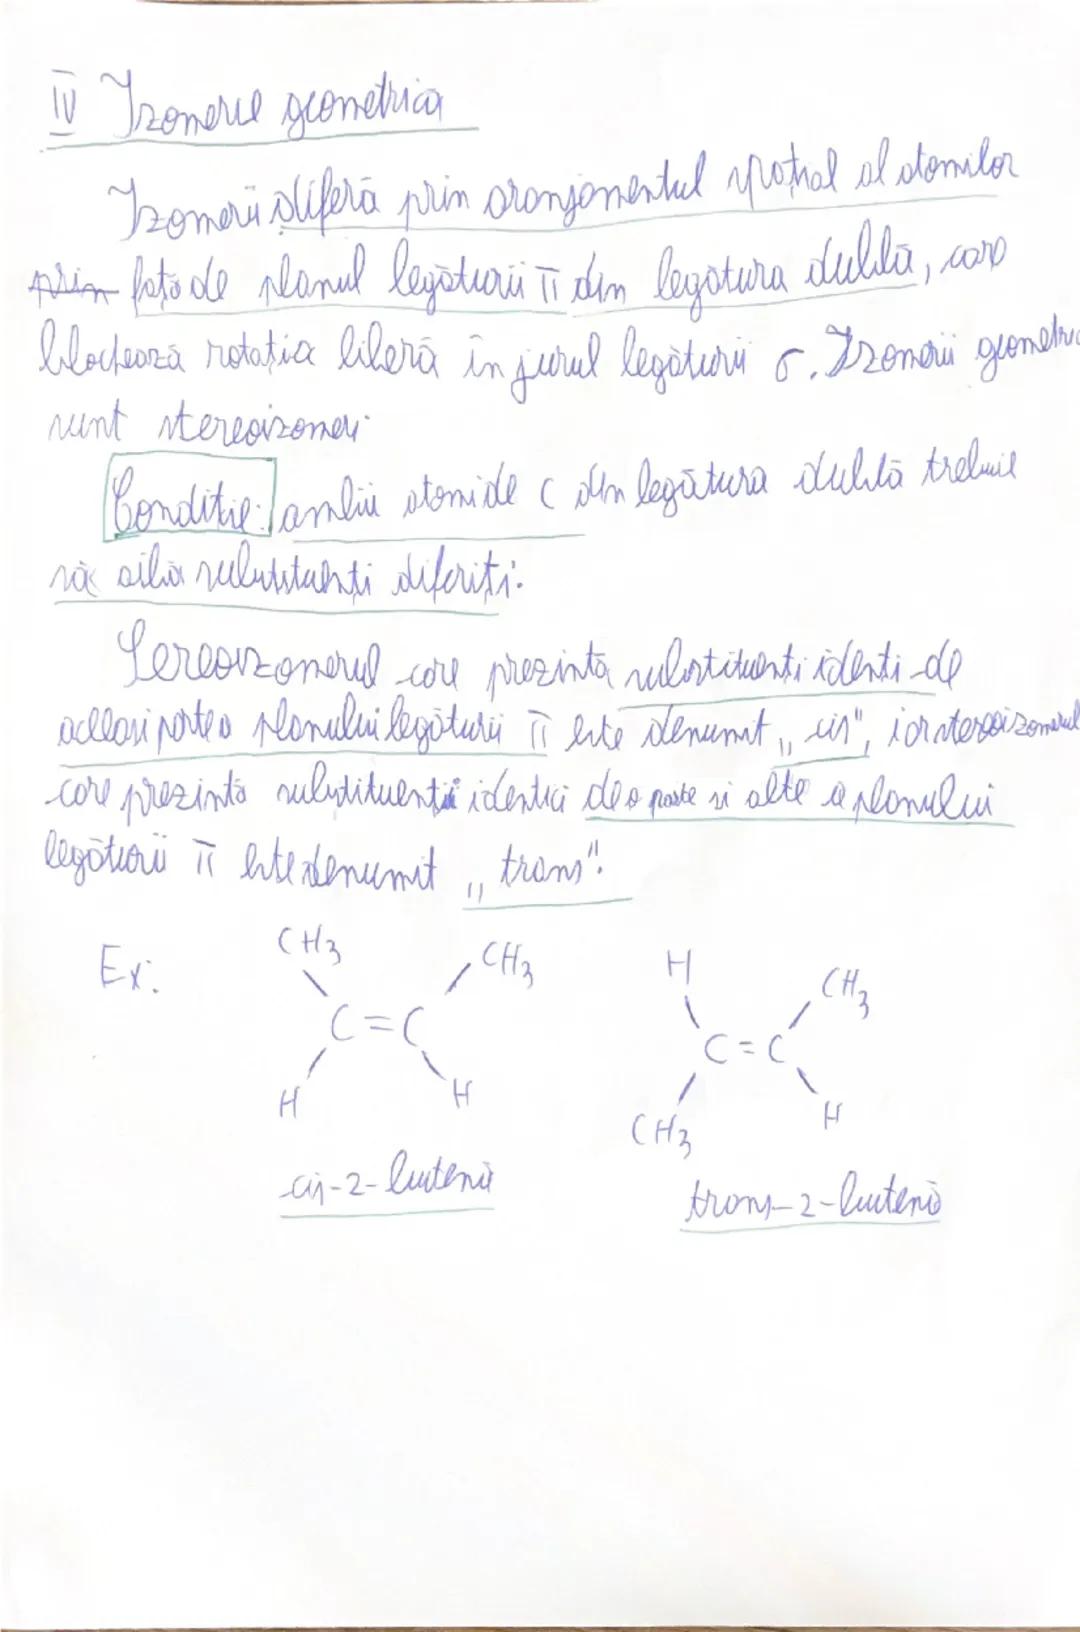 IV Izomerie geometrica
Izomerii diferă prin aranjamentul spațial al atomilor
prin fața de planul legăturii π din legătura dublă, care
blochează rotația liberă în jurul legăturii σ. Izomerii geometric
sunt stereoizomeri.
Conditie: ambii atomi de C din legătura dublă trebuie
să aibă substituenți diferiți.
Sereoizomerul care prezintă substituenti identi de
aceeasi parte a planului legăturii π este denumit „cis", iar stereoizomerul
care prezintă substituenti identici de o parte si alte a planului
legăturii π este denumit „trans".
Ex:
CH3 CH3
C=C
H H
cis-2-butenă
H CH3
C=C
CH3 H
trans-2-butenă